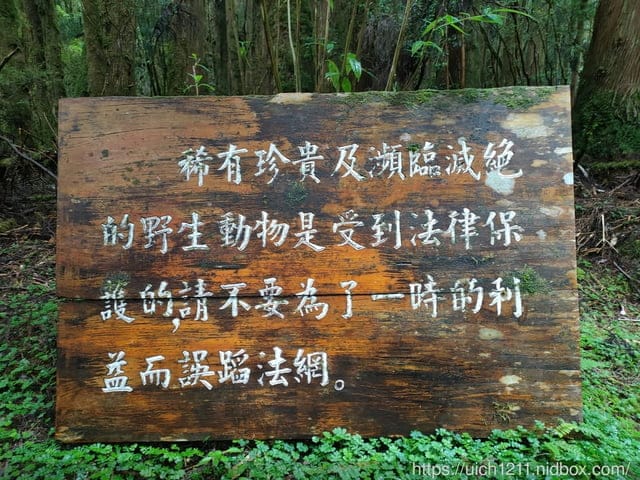 稀有珍貴及瀕臨滅絕
的野生動物是受到法律保
護的,請不要為了一時的利
益而誤蹈法網。
https://uich1211.nidbox.com/